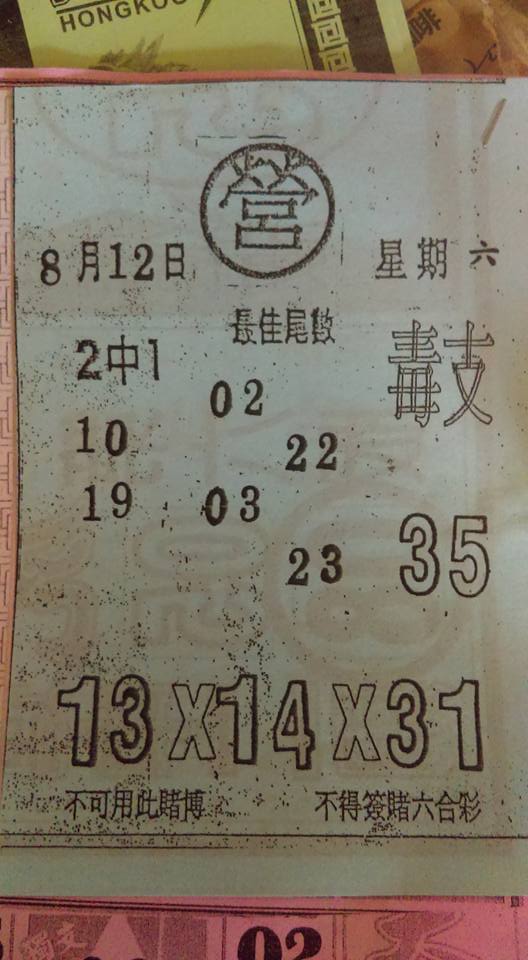 HONGKO
營
8月12日
星期六
最佳尾數
2中1
毒支
02
10
22
19
03
35
23
13X14X31
不可用此賭博
不得簽賭六合彩
02